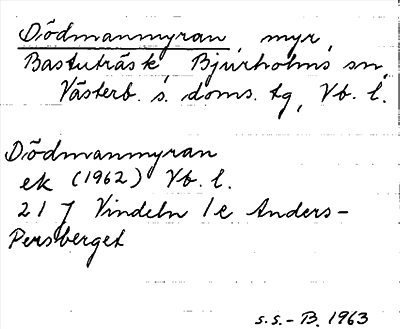 Dödmanmyran myr
Bastuträsk Bjurholms sn,
Västerb. s. doms. tg, Vb. l.
Dödmanmyran
ek (1962) Vb. l.
21 J Vindeln 1e Anders-
Persberget
s.s.-B. 1963